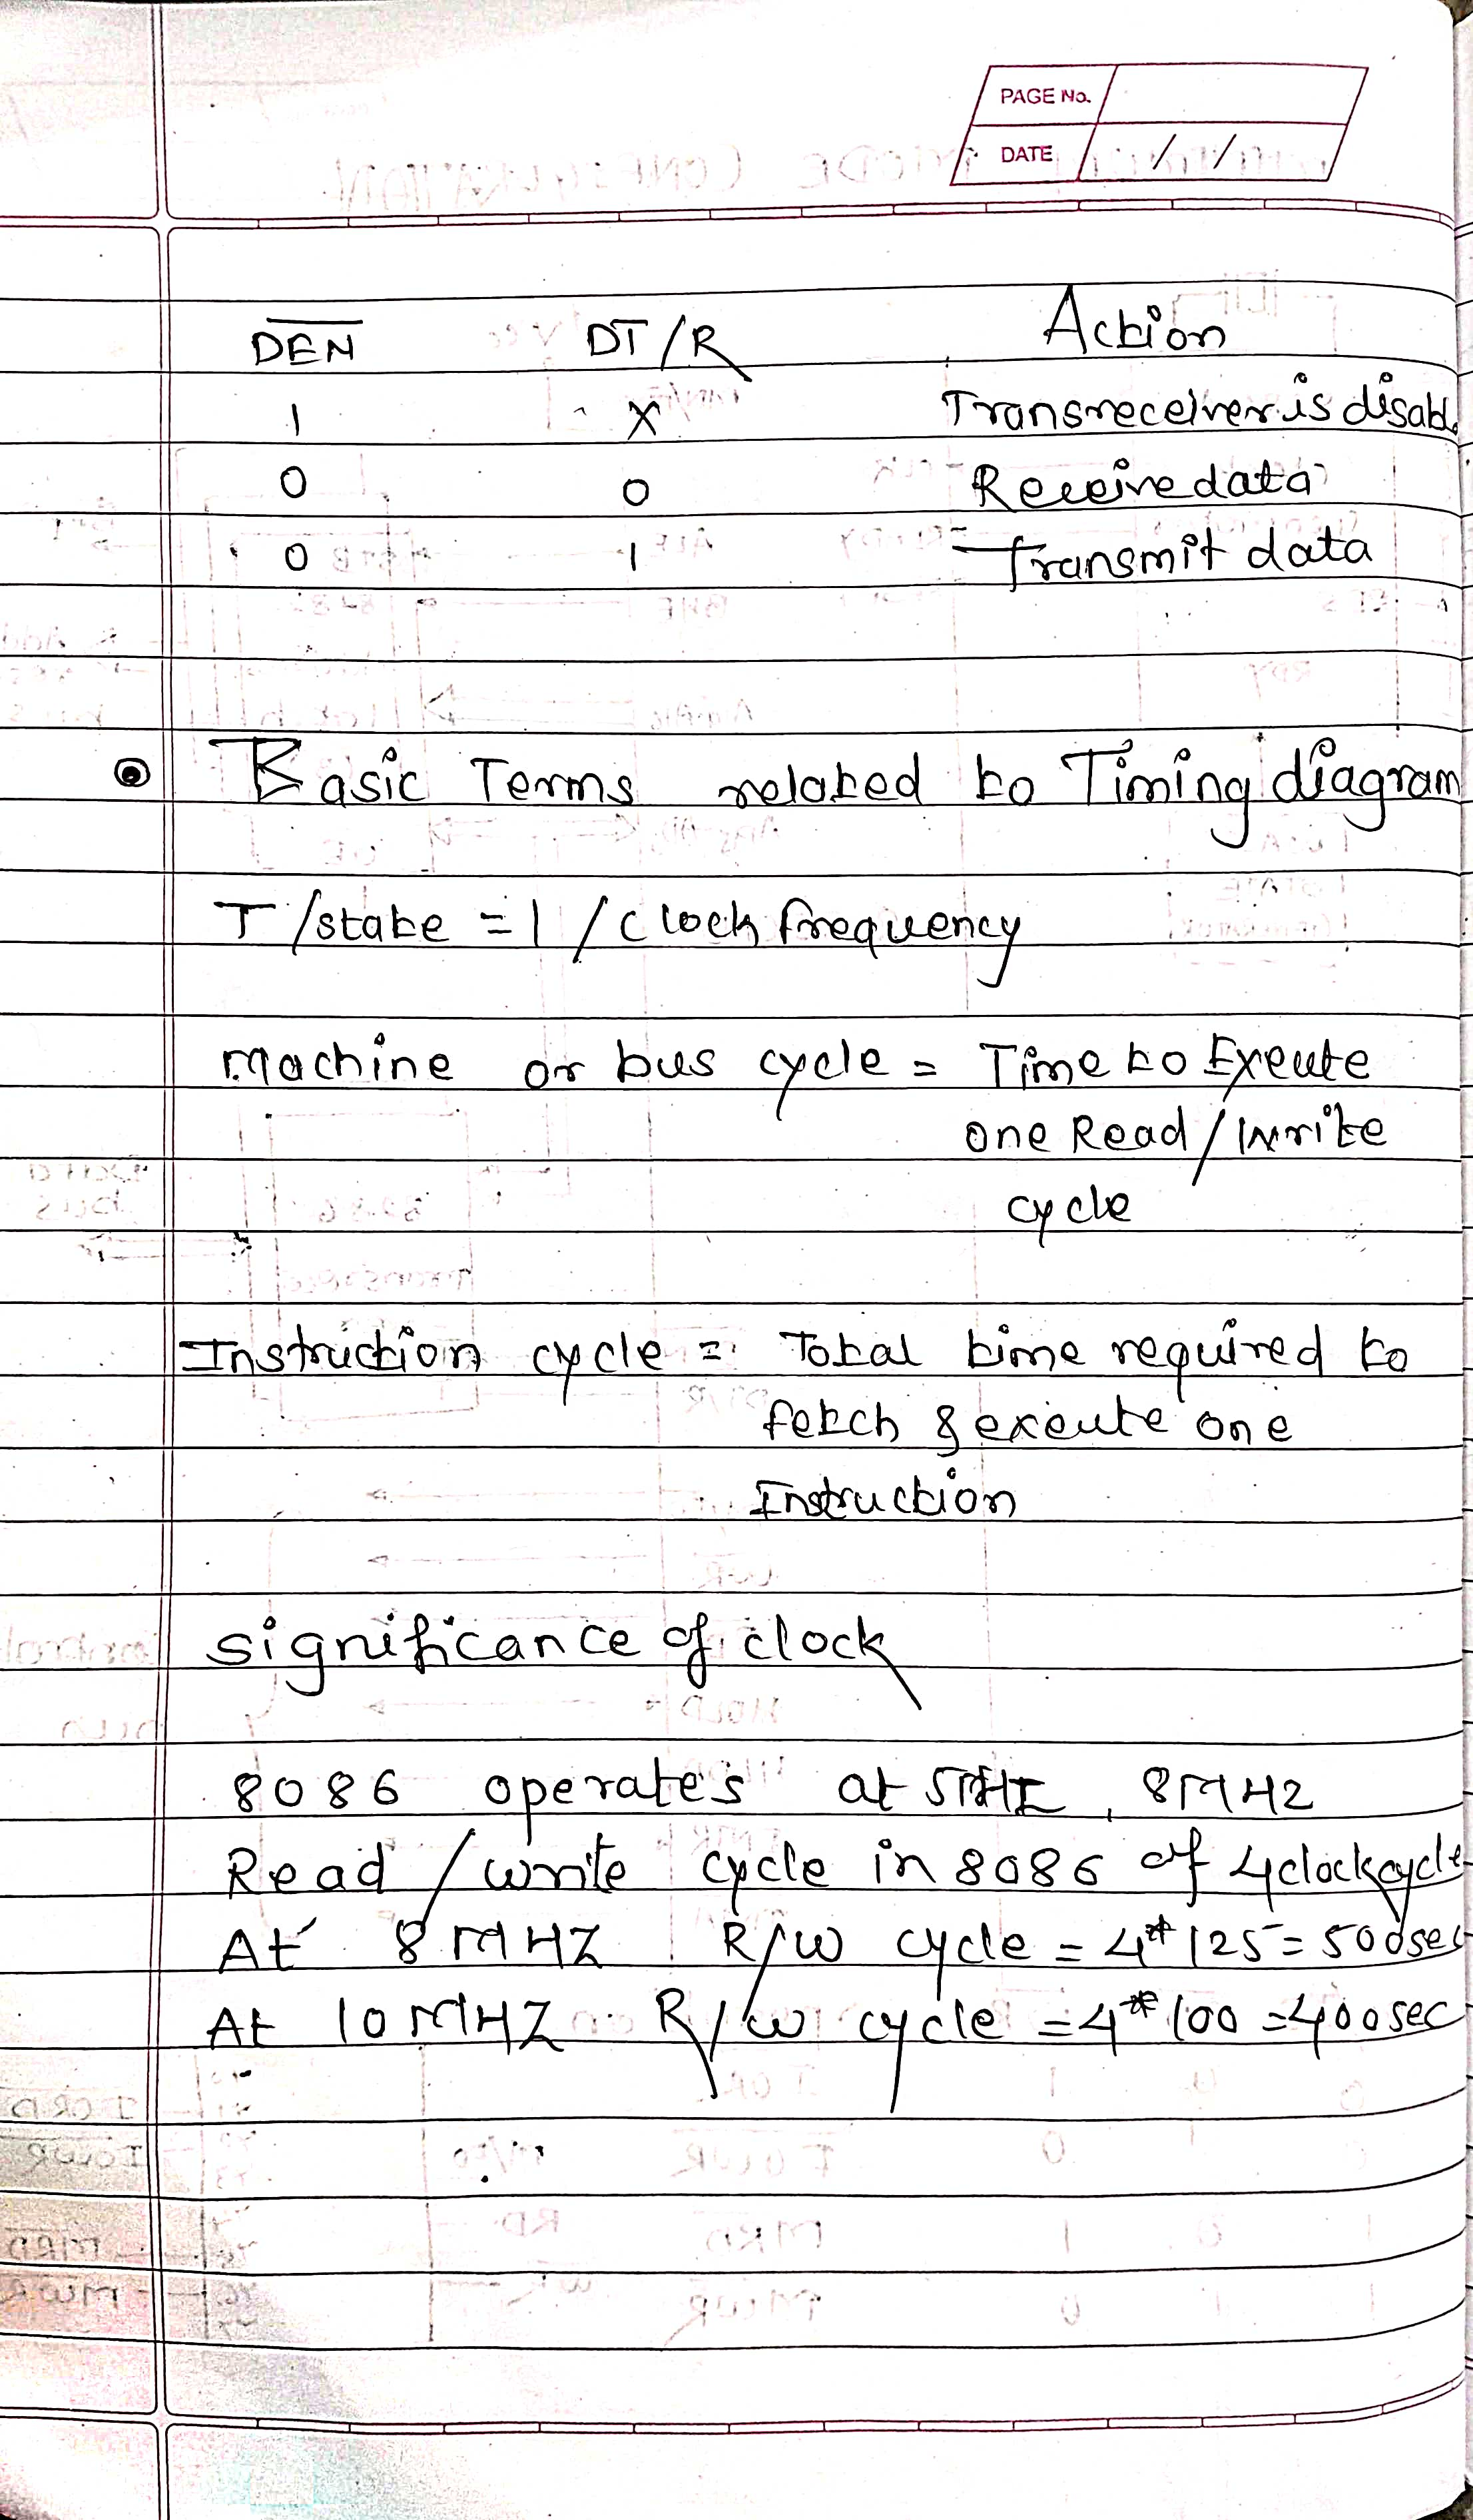 PAGE No.
DATE / /
DEN DT/R Action
1 X Transreceiver is disabl
0 0 Receive data
0 1 Transmit data
Basic Terms related to Timing diagram
T/state = 1 / clock frequency
Machine or bus cycle = Time to Exeute
one Read / Write
cycle
Instruction cycle = Total time required to
fetch & exeute one
Instruction
significance of clock
8086 operates at 5MHZ, 8MHZ
Read / write cycle in 8086 of 4clockcycle
At 8MHZ R/W cycle = 4*125 = 500sec
At 10 MHZ R/W cycle = 4*100 = 400sec